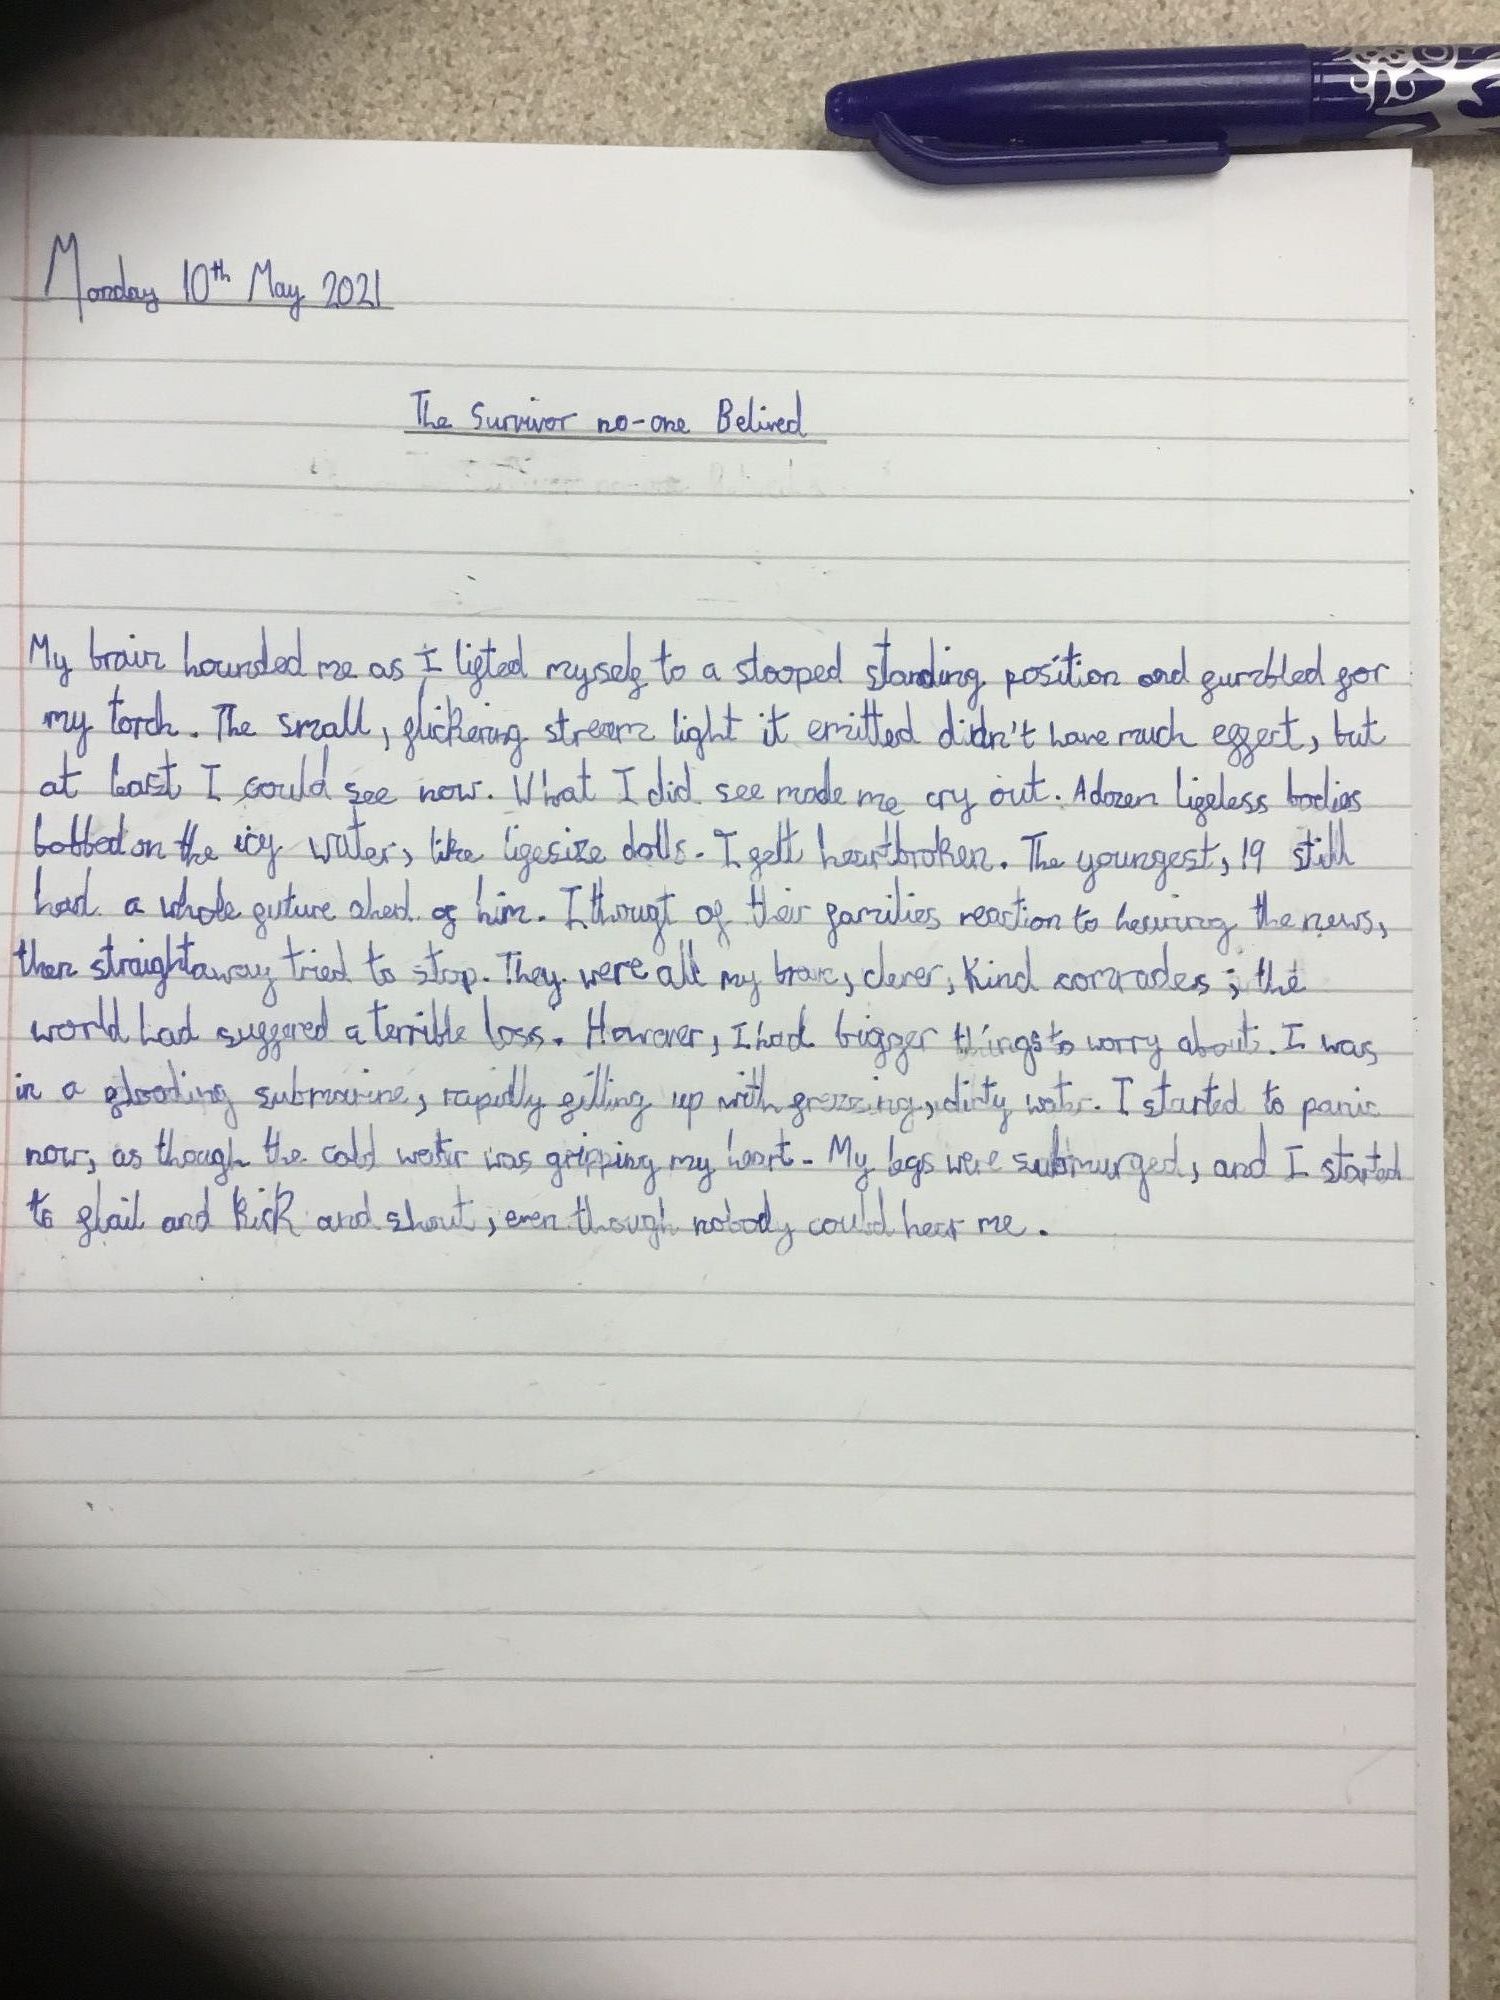 Monday 10th May 2021
The Survivor no-one Belived
My brain hounded me as I lifted myself to a stooped standing position and fumbled for
my torch. The small, flickering stream light it emitted didn't have much effect, but
at least I could see now. What I did see made me cry out. A dozen lifeless bodies
bobbed on the icy water, like lifesize dolls. I felt heartbroken. The youngest, 19 still
had a whole future ahed of him. I thougt of their families reaction to hearing the news,
then straightaway tried to stop. They were all my brave, clever, kind comrades; the
world had suffered a terrible loss. However, I had bigger things to worry about. I was
in a flooding submarine, rapidly filling up with freezing, dirty water. I started to panic
now, as though the cold water was gripping my heart. My legs were submurged, and I started
to flail and kick and shout, even though nobody could hear me.